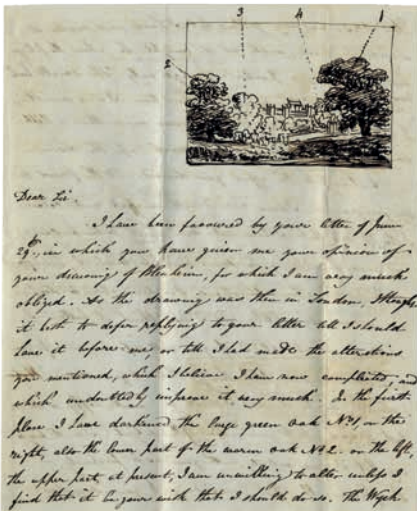 3 4 1
2
Dear Sir.
I have been favoured by your letter of June
29th, in which you have given me your opinion of
your drawing of Blenheim, for which I am very much
obliged. As the drawing was then in London, I thought
it best to defer replying to your letter till I should
have it before me, or till I had made the alterations
you mentioned, which I believe I have now completed, and
which undoubtedly improve it very much. In the first
place I have darkened the large green oak No1, on the
right, also the lower part of the warm oak No2. on the left,
the upper part, at present, I am unwilling to alter unless I
find that it be your wish that I should do so. The Wych